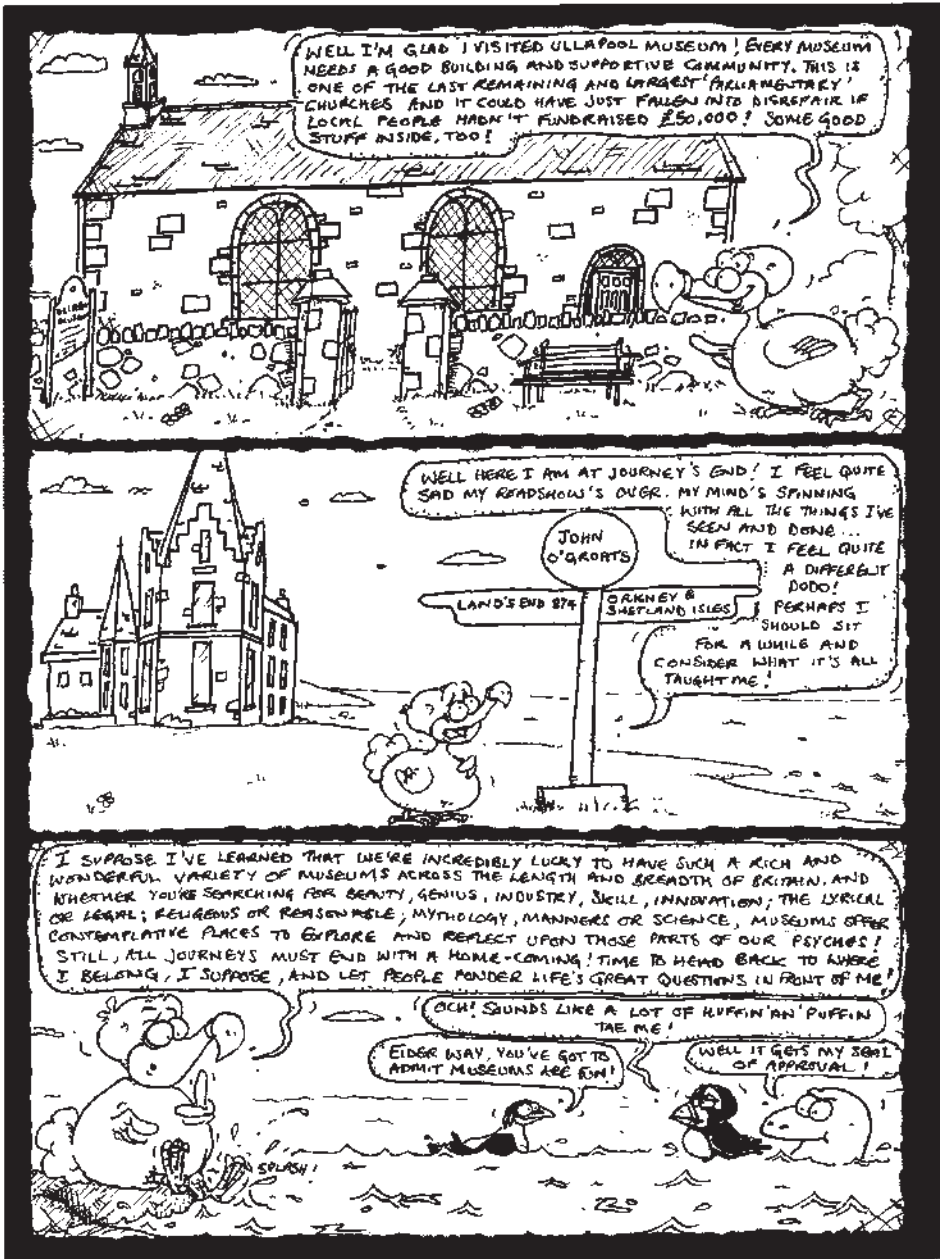 WELL I'M GLAD I VISITED ULLAPOOL MUSEUM! EVERY MUSEUM
NEEDS A GOOD BUILDING AND SUPPORTIVE COMMUNITY. THIS IS
ONE OF THE LAST REMAINING AND LARGEST 'PARLIAMENTARY'
CHURCHES AND IT COULD HAVE JUST FALLEN INTO DISREPAIR IF
LOCAL PEOPLE HADN'T FUNDRAISED £50,000! SOME GOOD
STUFF INSIDE, TOO!
WELL HERE I AM AT JOURNEY'S END! I FEEL QUITE
SAD MY ROADSHOW'S OVER. MY MIND'S SPINNING
WITH ALL THE THINGS I'VE
SEEN AND DONE...
IN FACT I FEEL QUITE
A DIFFERENT
DODO!
PERHAPS I
SHOULD SIT
FOR A WHILE AND
CONSIDER WHAT IT'S ALL
TAUGHT ME!
JOHN
O'GROATS
LAND'S END 874
ORKNEY &
SHETLAND ISLES
I SUPPOSE I'VE LEARNED THAT WE'RE INCREDIBLY LUCKY TO HAVE SUCH A RICH AND
WONDERFUL VARIETY OF MUSEUMS ACROSS THE LENGTH AND BREADTH OF BRITAIN. AND
WHETHER YOU'RE SEARCHING FOR BEAUTY, GENIUS, INDUSTRY, SKILL, INNOVATION; THE LYRICAL
OR LEGAL; RELIGEOUS OR REASONABLE; MYTHOLOGY, MANNERS OR SCIENCE, MUSEUMS OFFER
CONTEMPLATIVE PLACES TO EXPLORE AND REFLECT UPON THOSE PARTS OF OUR PSYCHES!
STILL, ALL JOURNEYS MUST END WITH A HOME-COMING! TIME TO HEAD BACK TO WHERE
I BELONG, I SUPPOSE, AND LET PEOPLE PONDER LIFE'S GREAT QUESTIONS IN FRONT OF ME!
OCH! SOUNDS LIKE A LOT OF HUFFIN' AN' PUFFIN
TAE ME!
EIDER WAY, YOU'VE GOT TO
ADMIT MUSEUMS ARE FUN!
WELL IT GETS MY SEAL
OF APPROVAL!
SPLASH!